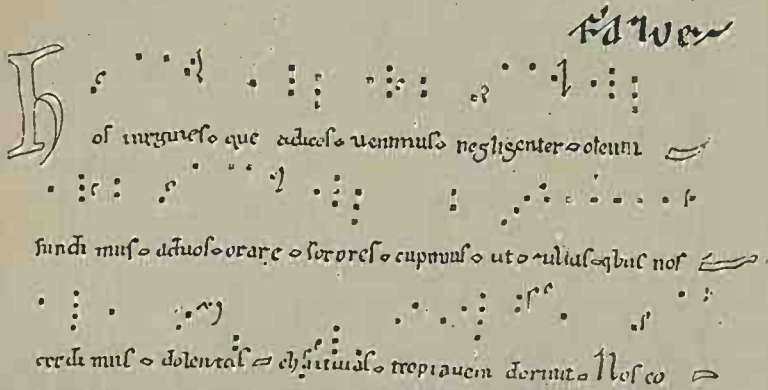 Fatue
Nos uirgines que aduos uenimus negligenter oleum
fundi mus aduos orare sorores cupimus ut & illas qbus nos
credi mus dolentas chaitiuas trop iauem dormit Nos co